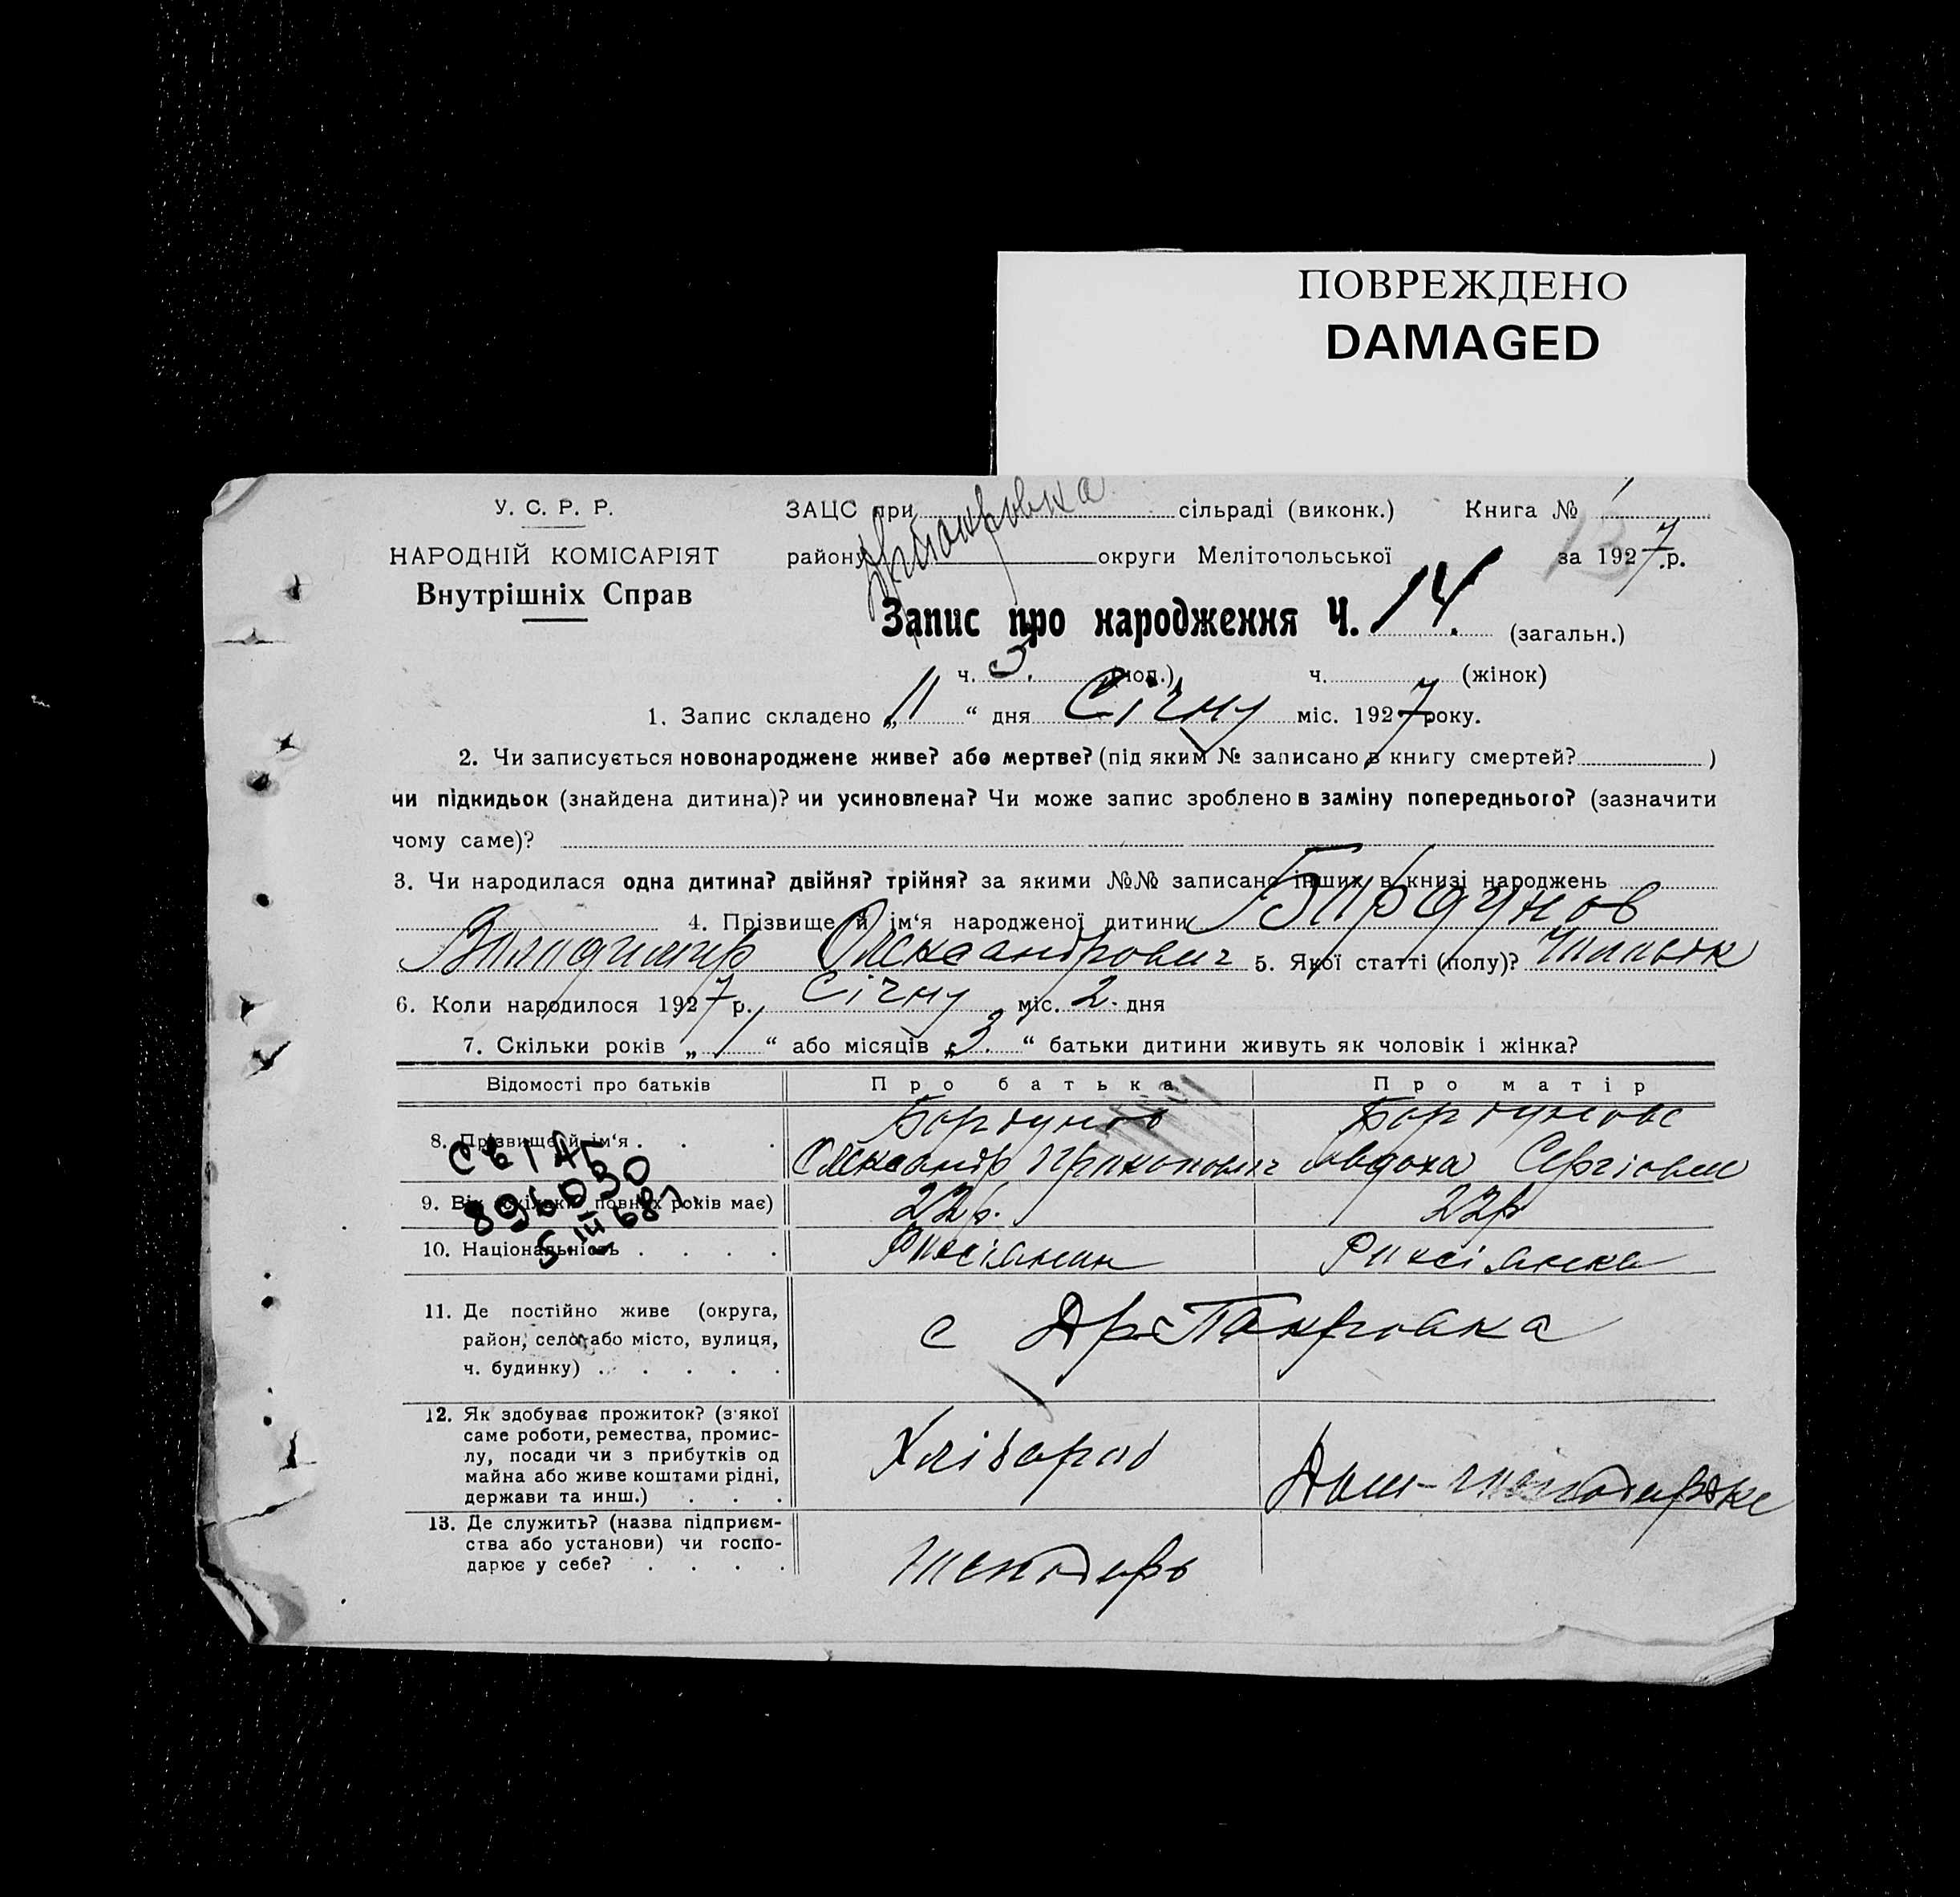 ПОВРЕЖДЕНО
DAMAGED
У. С. Р. Р.
НАРОДНІЙ КОМІСАРІЯТ
Внутрішніх Справ
ЗАЦС при сільраді (виконк.) Книга № 1
району округи Мелітопольської за 1927 р.
Запис про народження Ч. 14. (загальн.)
ч. 3. (чол.) ч. (жінок)
1. Запис складено „11“ дня Січну міс. 1927 року.
2. Чи записується новонароджене живе? або мертве? (під яким № записано в книгу смертей? )
чи підкидьок (знайдена дитина)? чи усиновлена? Чи може запис зроблено в заміну попереднього? (зазначити
чому саме)?
3. Чи народилася одна дитина? двійня? трійня? за якими №№ записано інших в книзі народжень
4. Прізвище й ім‘я народженої дитини
Володимир Олександрович 5. Якої статті (полу)?
6. Коли народилося 1927 р. Січну міс. 2. дня
7. Скільки років „1“ або місяців „3.“ батьки дитини живуть як чоловік і жінка?
Відомості про батьків Про батька Про матір
8. Прізвище й ім‘я . . .
Олександр Прокопович
896030
9. Вік (скільки повних років має) 22 р. 22 р
5 III 68
10. Національність . . . .
11. Де постійно живе (округа,
район, село або місто, вулиця,
ч. будинку) . . . . .
с
12. Як здобуває прожиток? (з якої
саме роботи, ремества, промис-
лу, посади чи з прибутків од
майна або живе коштами рідні,
держави та инш.) . . .
Хлібороб
13. Де служить? (назва підприєм-
ства або установи) чи госпо-
дарює у себе? . . . .